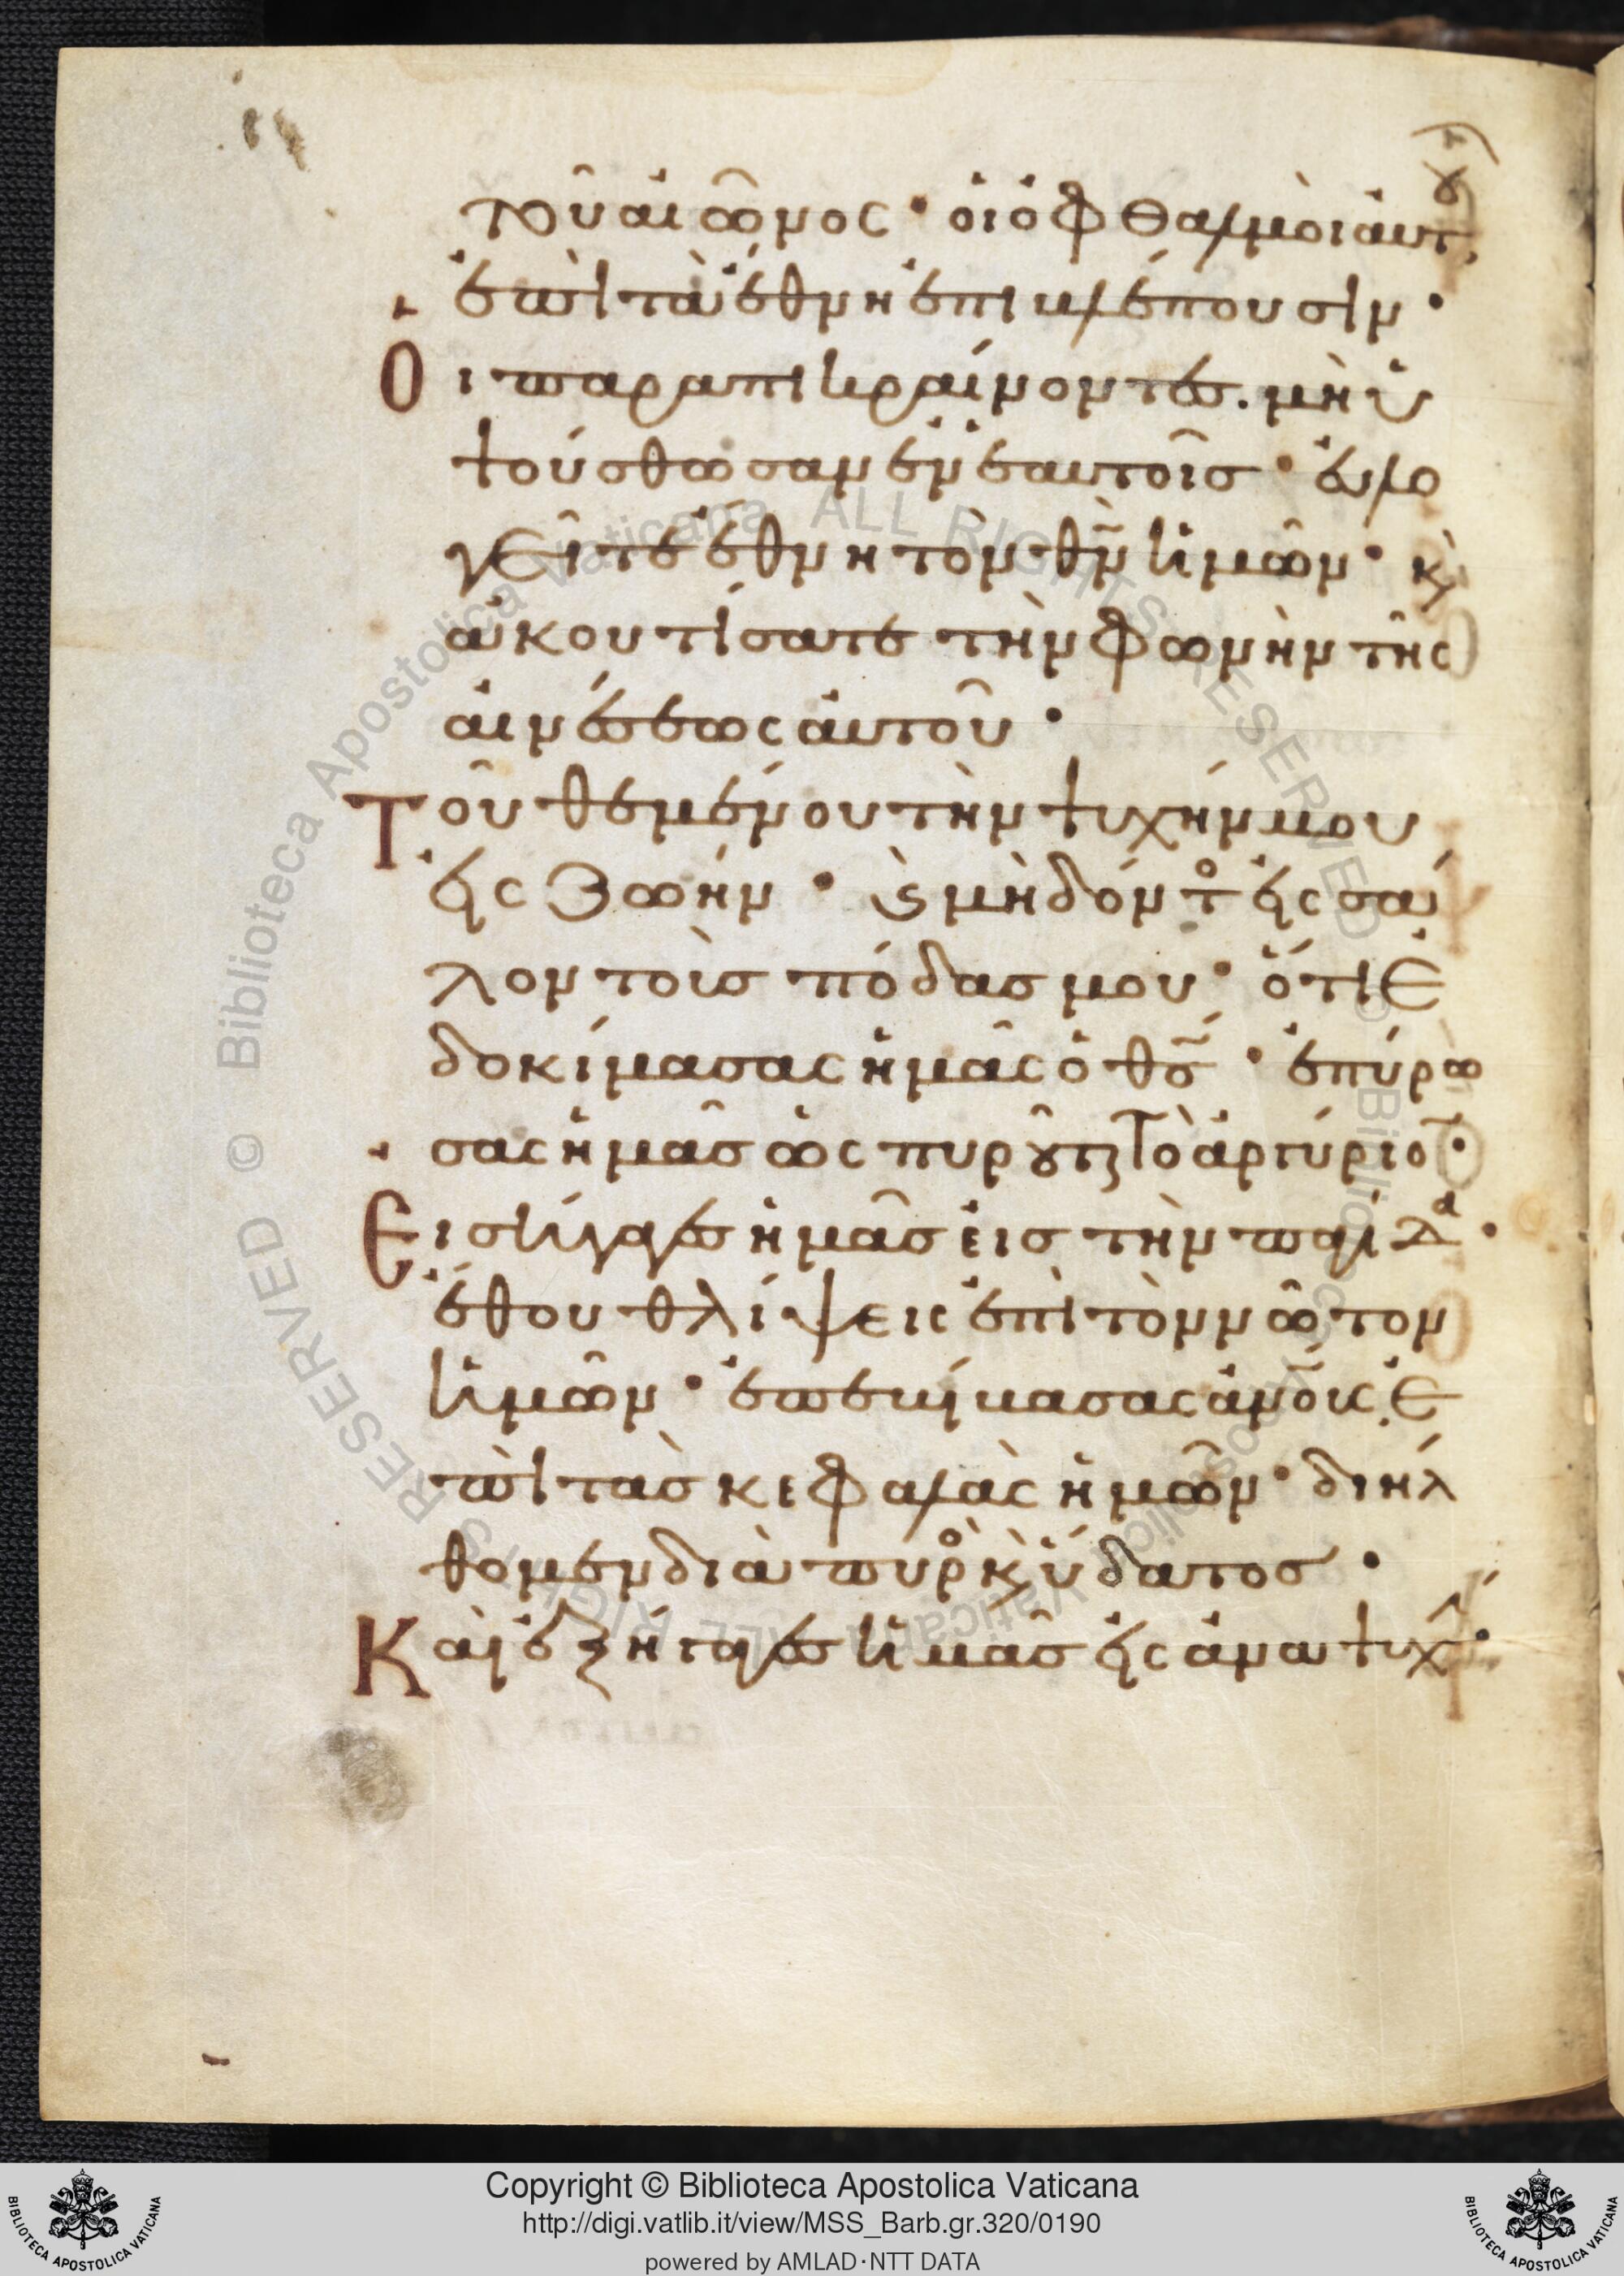 τοῦ αἰῶνος· οἱ ὀφθαλμοὶ ἀυτου
ἐπὶ τὰ ἔθνη ἐπιβλέπουσιν·
Οι παραπικραίνοντες. μὴ ὑ
ψούσθωσαν ἐν ἑαυτοῖσ· ἐυλο
γεῖτε ἔθνη τὸν θν̅ ἡμῶν· κὶ
ἀκουτίσατε τὴν φωνὴν τῆς
αἰνέσεως ἀυτοῦ·
Τοῦ θεμένου τὴν ψυχήν μου
εἰς ζωήν· ϗ μὴ δόντος εἰς σά
λον τοὺσ πόδασ μου· ὅτι ἐ
δοκίμασας ἡμᾶς ὁ θσ̅· ἐπύρω
σας ἡμᾶσ ὡς πυροῦται τὸ ἀργύριον·
Εισήγαγες ἡμᾶσ εἰσ τὴν παγίδα·
ἔθου θλίψεις ἐπὶ τὸν νῶτον
ἡμῶν· ἐπεβίβασας ἀνοῦς ἐ
πὶ τὰσ κεφαλὰς ἡμῶν· διήλ
θομεν διὰ πυρὸς κὶ ὕδατοσ·
Καὶ ἐξήγαγες ἡμᾶσ εἰς ἀναψυχήν·
Copyright © Biblioteca Apostolica Vaticana
http://digi.vatlib.it/view/MSS_Barb.gr.320/0190
powered by AMLAD·NTT DATA